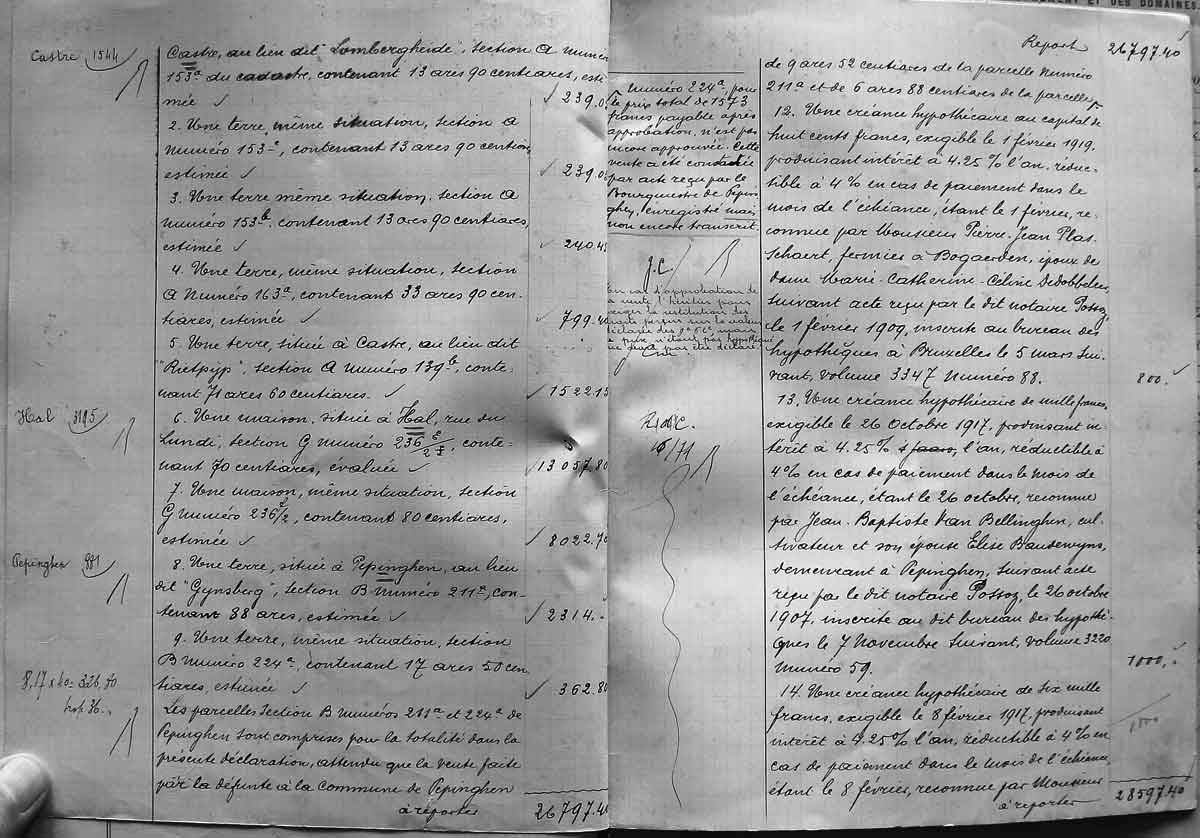 MENT ET DES DOMAINES
Castre 1544
Castre, au lieu dit "Lombergheide", section A numéro
153ª du cadastre, contenant 13 ares 90 centiares, esti
mée 239.0
2. Une terre, même situation, section A
numéro 153, contenant 13 ares 90 centiares
estimée 239.0
3. Une terre même situation, section A
numéro 153ᵇ, contenant 13 ares 90 centiares,
estimée 240.45
4. Une terre, même situation, section
A numéro 163ª, contenant 33 ares 90 cen-
tiares, estimée 799.40
5. Une terre, située à Castre, au lieu dit
"Rietpyp", section A numéro 139ᵇ, conte-
nant 71 ares 60 centiares. 1522.15
Hal 3195
6. Une maison, située à Hal, rue du
Lundi, section G numéro 236, conte-
nant 70 centiares, évaluée 13057.80
7. Une maison, même situation, section
G numéro 236, contenant 80 centiares,
estimée 8022.70
Pepinghen 981
8. Une terre, située à Pepinghen, au lieu
dit "Gynsberg", section B numéro 211ª, con-
tenant 88 ares, estimée 2314.-
9. Une terre, même situation, section
B numéro 224ª, contenant 17 ares 50 cen
tiares, estimée 362.80
8,17 x 40 = 326,80
Les parcelles section B numéros 211ª et 224ª de
Pepinghen sont comprises pour la totalité dans la
présente déclaration, attendu que la vente faite
par la défunte à la Commune de Pepinghen
à reporter 26797.40
numéro 224ª, pour
le prix total de 1573
francs payable après
approbation, n'est pas
encore approuvée. Cette
vente a été constatée
par acte reçu par le
Bourgmestre de Pepin
ghen, enregistré mais
non encore transcrit.
J.C
En cas d'approbation de
la vente, l'héritier pourra
exiger la restitution des
droits perçus sur la valeur
16/11
Report 26797.40
de 9 ares 52 centiares de la parcelle numéro
211ª et de 6 ares 88 centiares de la parcelle
12. Une créance hypothécaire au capital de
huit cents francs, exigible le 1 février 1919,
produisant intérêt à 4.25 % l'an, réduc-
tible à 4 % en cas de paiement dans le
mois de l'échéance, étant le 1 février, re-
connue par Monsieur Pierre-Jean Plas-
schaert, fermier à Bogaerden, époux de
dame Marie-Catherine-Céline Dedobbeleer,
suivant acte reçu par le dit notaire Possoz,
le 1 février 1909, inscrite au bureau des
hypothèques à Bruxelles le 5 mars sui-
vant, volume 3347 numéro 88. 800.
13. Une créance hypothécaire de mille francs,
exigible le 26 octobre 1917, produisant in-
térêt à 4.25 % l'an, réductible à
4 % en cas de paiement dans le mois de
l'échéance, étant le 26 octobre, reconnue
par Jean-Baptiste Van Bellinghen, cul-
tivateur et son épouse Elise Baudewyns,
demeurant à Pepinghen, suivant acte
reçu par le dit notaire Possoz, le 26 octobre
1907, inscrite au dit bureau des hypothè-
ques le 7 Novembre suivant, volume 3220
numéro 59. 1000.
14. Une créance hypothécaire de six mille
francs, exigible le 8 février 1917, produisant
intérêt à 4.25 % l'an, réductible à 4 % en
cas de paiement dans le mois de l'échéance,
étant le 8 février, reconnue par Monsieur
à reporter 28597.40